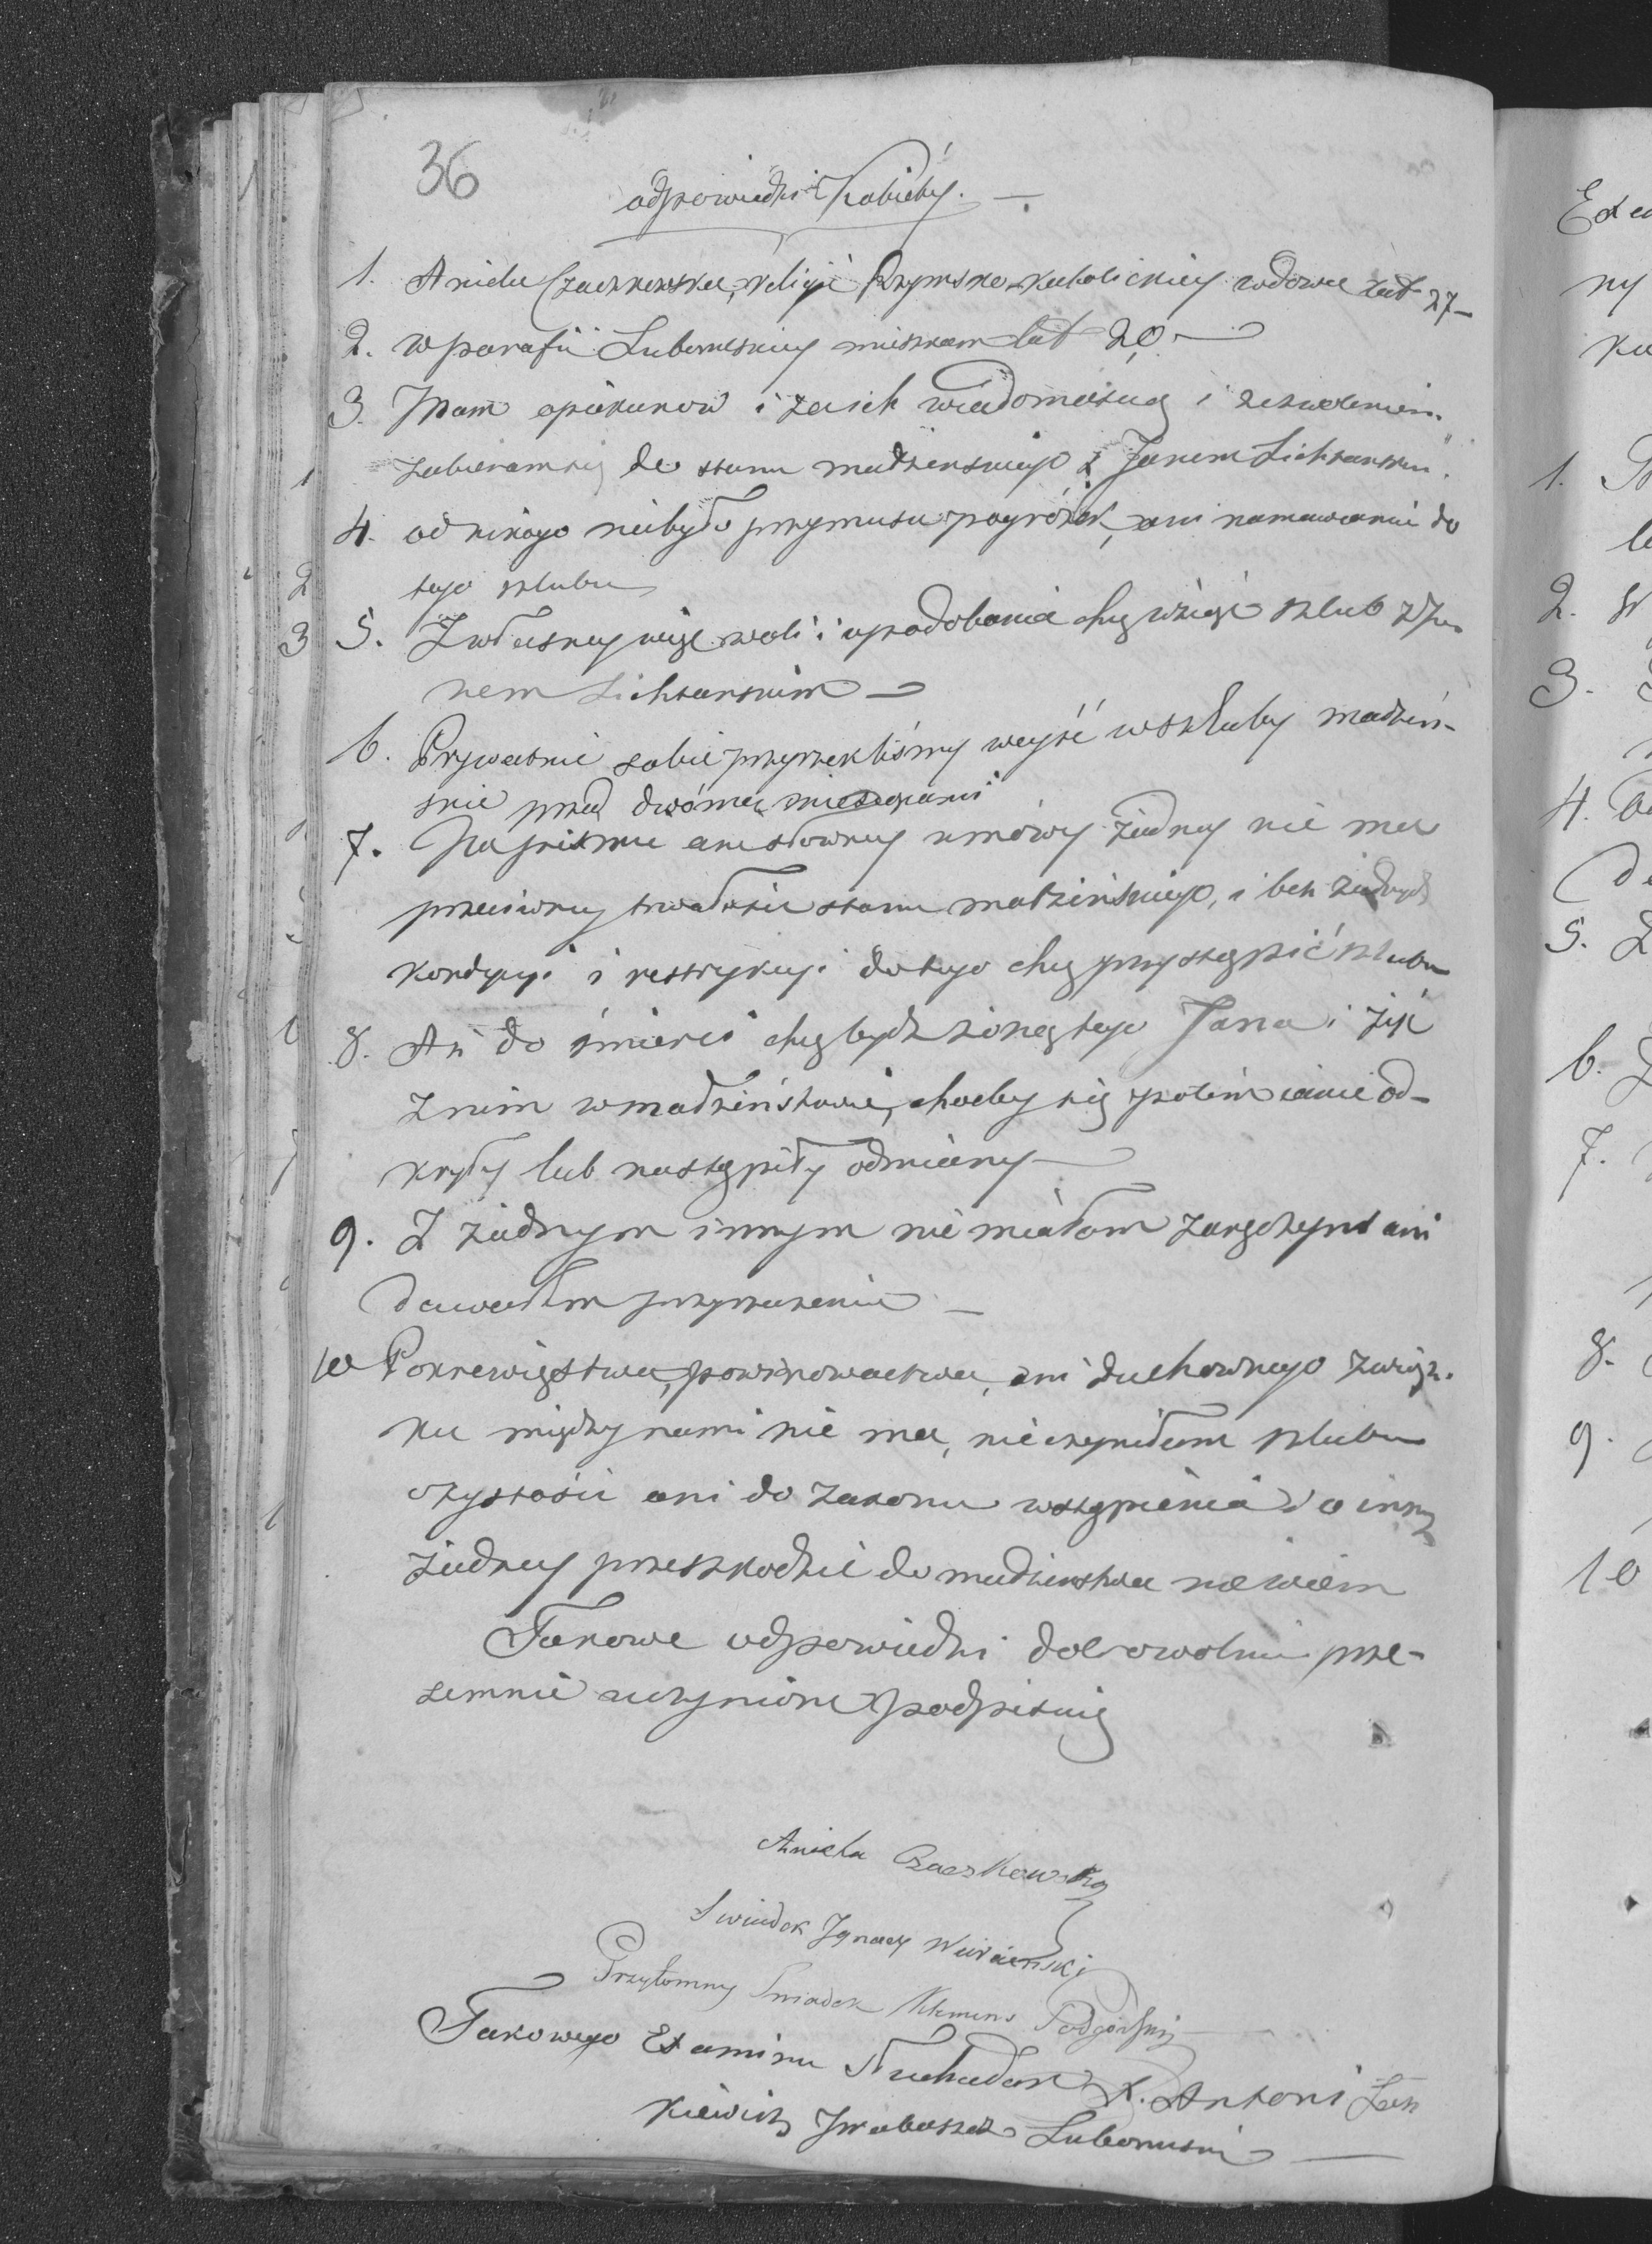 36
odpowiedzi Kobiéty. —
1. Aniela Czaczkowska, religii Rzymsko-Katolickiey wdowa lat 27 —
2. w parafii Lubomeskiey mieszkam lat 20 —
3. Mam opiekunów i za ich wiadomością i zezwoleniem
zabieram się do stanu małżenskiego z Janem Lichtanskim.
4. od nikogo niebyło przymusu, pogróżek, ani namawiania do
tego szlubu
5. Z własney więc woli i upodobania chcę wziąść szlub z Ja-
nem Lichtanskim —
6. Prywatnie sobie przyrzekliśmy weyść w szluby małżeń-
skie przed dwóma miesiącami
7. Na piśmie ani słowney umowy żadney nie ma
przeciwney trwałości stanu małżeńskiego, i bez żadnych
kondycyi i restrykcyi do tego chcę przystąpić szlubu
8. Aż do śmierci chcę bydź żoną tego Jana i żyć
z nim w małżeństwie, choćby się potém iakie od-
kryły lub nastąpiły odmiany —
9. Z żadnym innym nie miałam zaręczyn ani
dawałam przyrzeczenia —
10 Pokrewięstwa, powinowactwa, ani duchownego związ-
ku między nami nie ma, nie czyniłam szlubu
czystości ani do zakonu wstąpienia i o inney
żadney przeszkodzie do małżenstwa nie wiem
Takowe odpowiedzi dobrowolnie prze-
zemnie uczynione podpisuię
Aniela Czaczkowska
Swiadek Ignacy
Przytomny Swiadek Klemens Podgórski
Takowego Examinu Słuchałem X. Antoni
Proboszcz